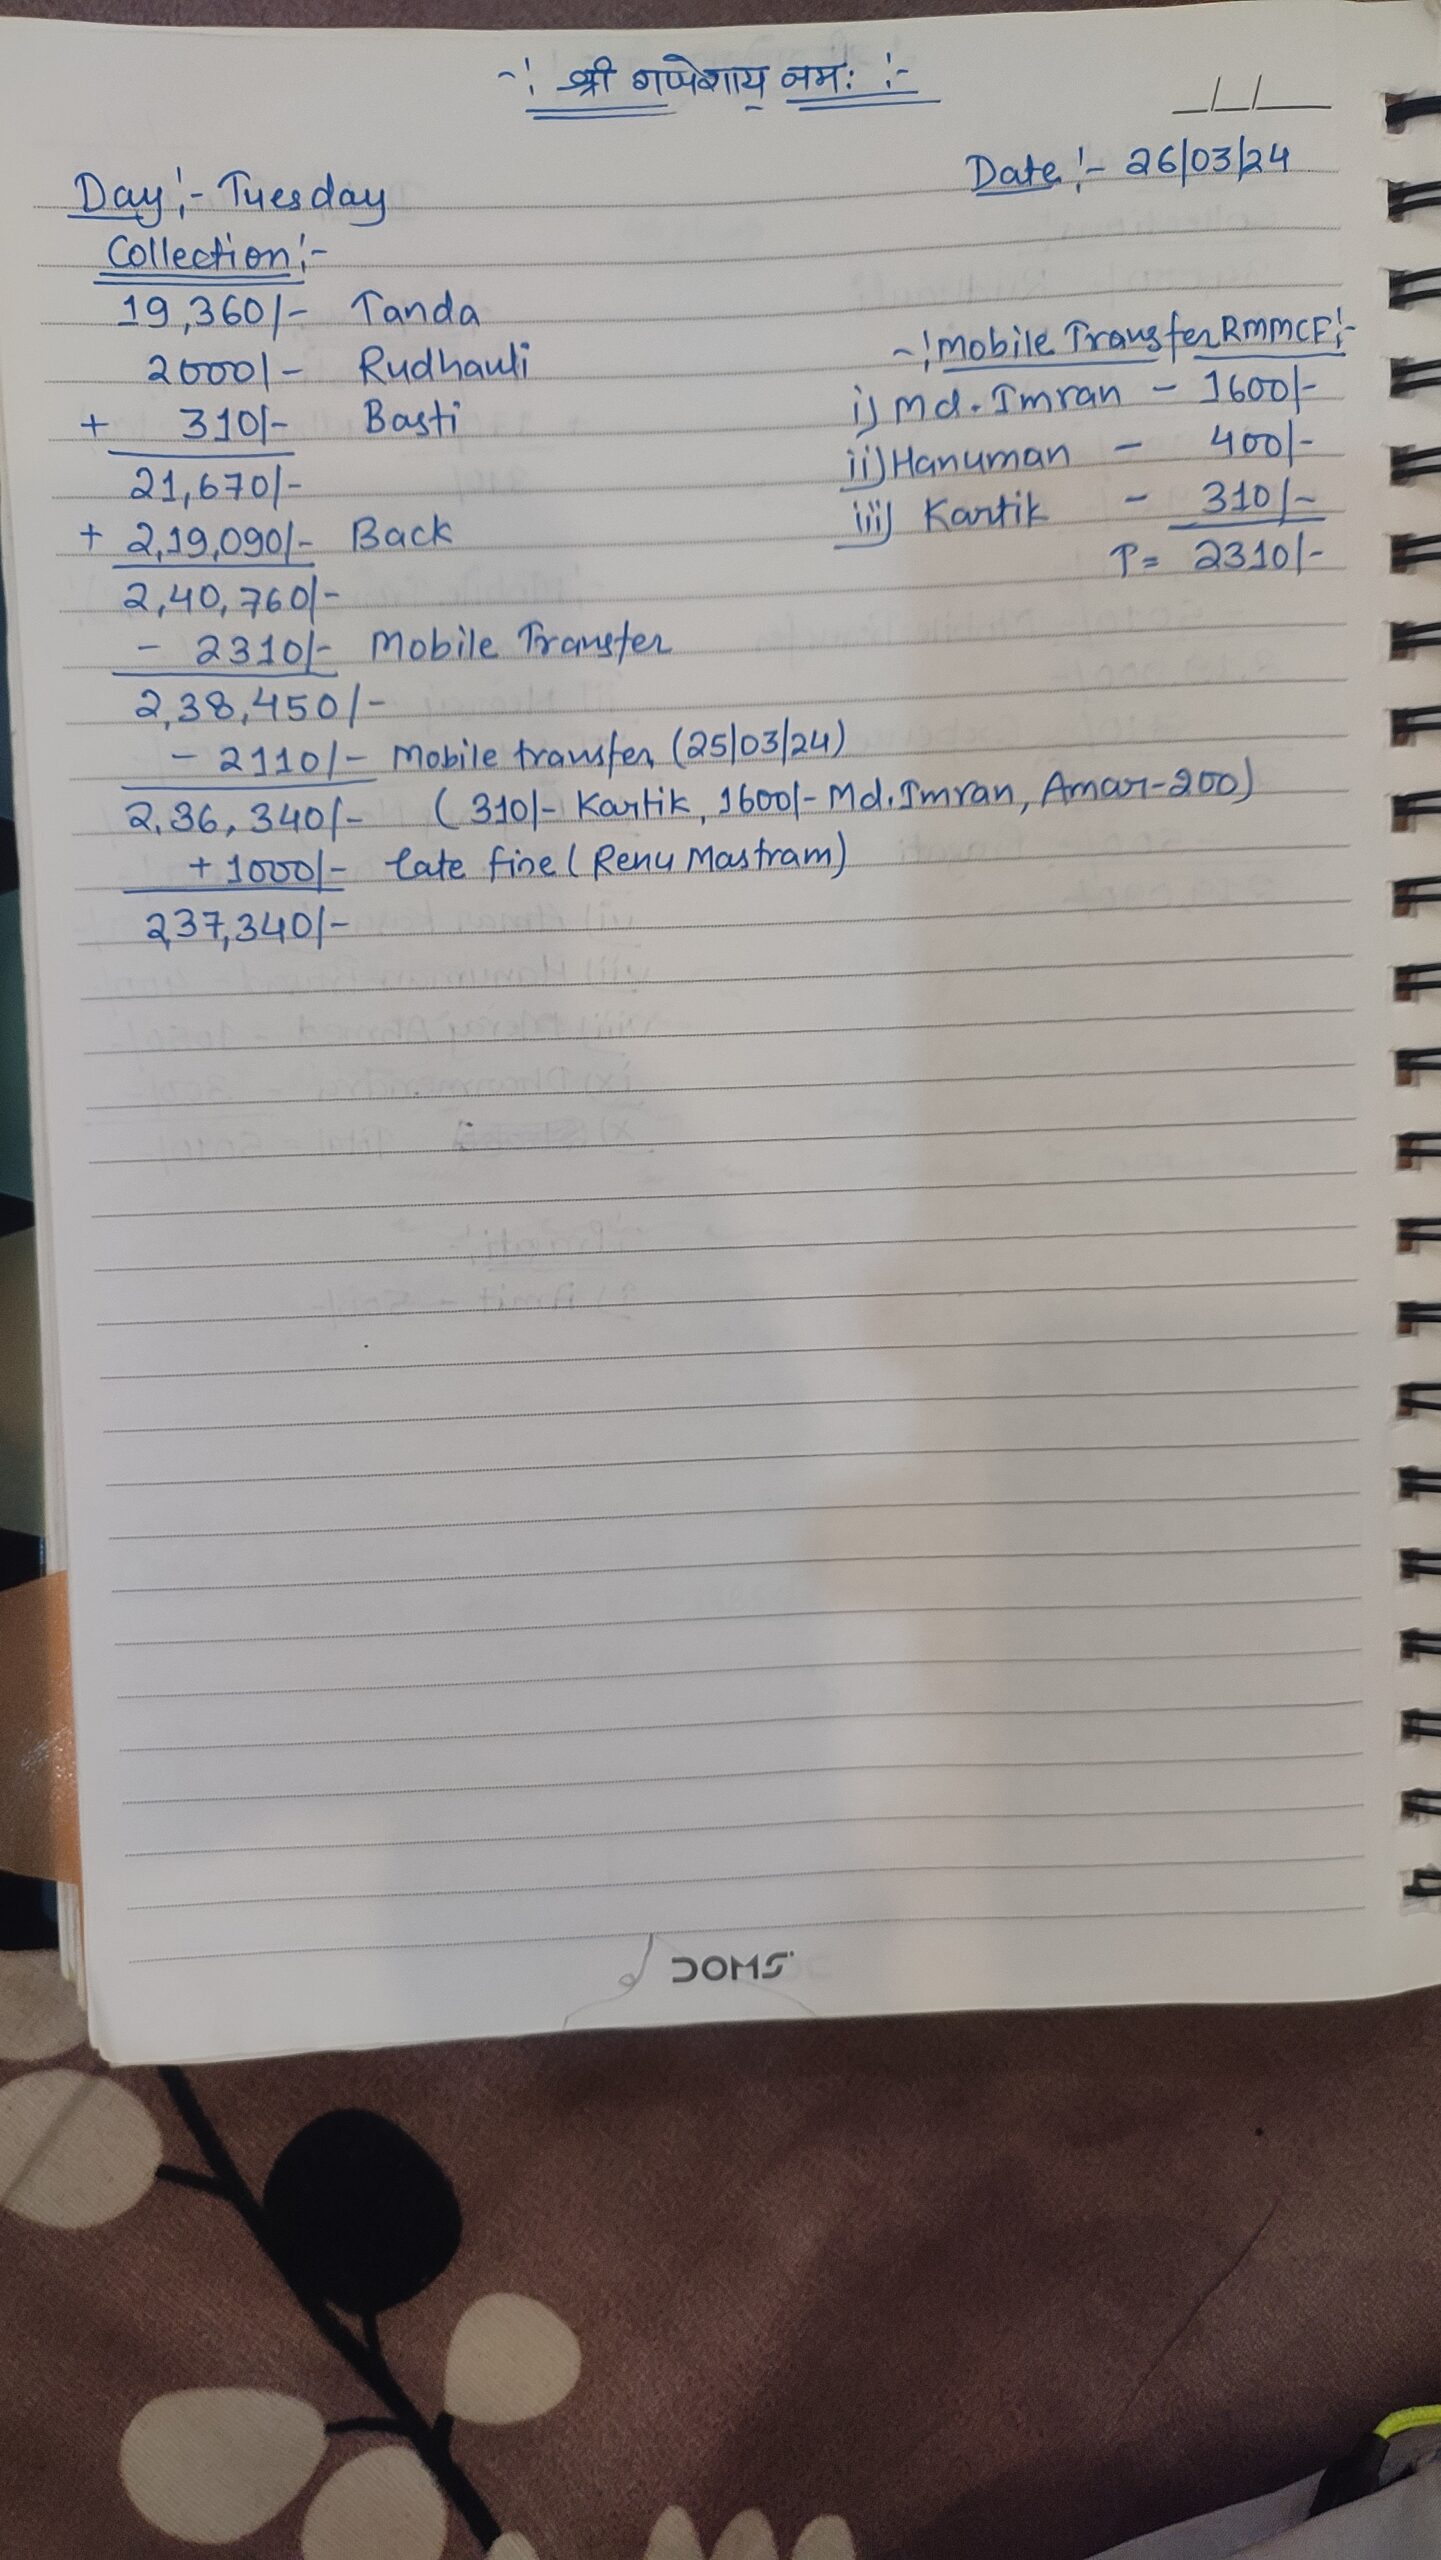 -: श्री गणेशाय नमः :-
Date :- 26/03/24
Day :- Tuesday
Collection :-
19,360/- Tanda
2000/- Rudhauli
+ 310/- Basti
21,670/-
+ 2,19,090/- Back
2,40,760/-
- 2310/- Mobile Transfer
2,38,450/-
- 2110/- Mobile transfer (25/03/24)
2,36,340/- (310/- Kartik, 1600/- Md. Imran, Amar-200)
+ 1000/- late fine (Renu Mastram)
2,37,340/-
-: Mobile Transfer RMMCF :-
i) Md. Imran - 1600/-
ii) Hanuman - 400/-
iii) Kartik - 310/-
T= 2310/-
DOMS